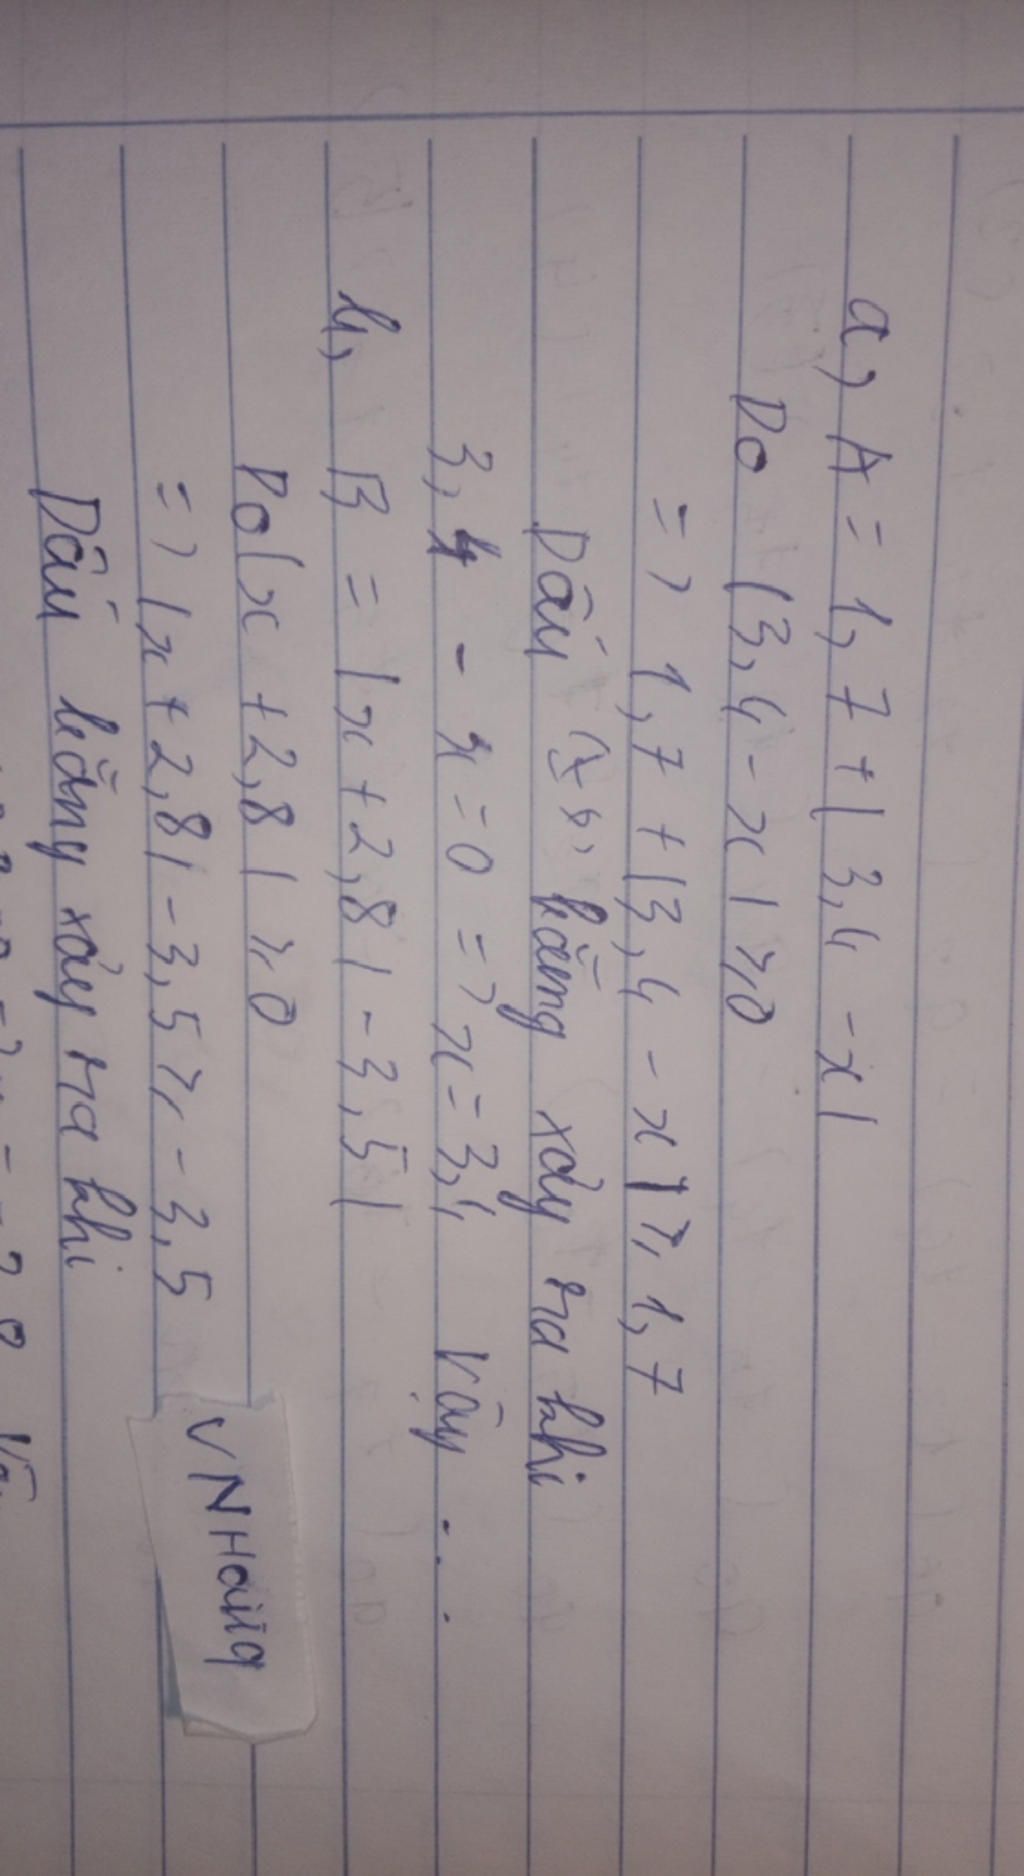 a, A = 1,7 + | 3,4 - x|
Do |3,4 - x| ≥ 0
=> 1,7 + |3,4 - x| ≥ 1,7
Dấu "=" bằng xảy ra khi
3,4 - x = 0 => x = 3,4 Vậy ...
b, B = |x + 2,8| - 3,5|
Do |x + 2,8| ≥ 0
=> |x + 2,8| - 3,5 ≥ - 3,5
VNHang
Dấu bằng xảy ra khi